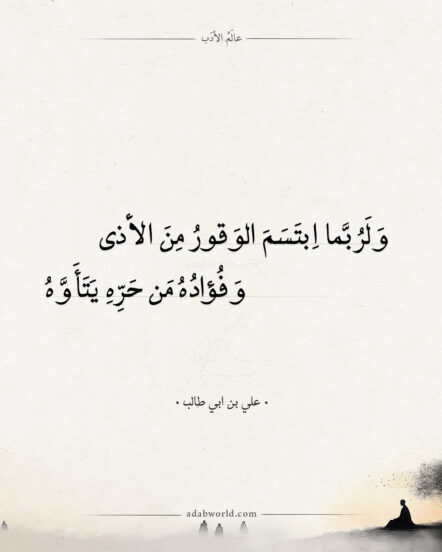 عالَمُ الأدَب
وَلَرُبَّما اِبتَسَمَ الوَقورُ مِنَ الأَذى
وَفُؤادُهُ مَن حَرِّهِ يَتَأَوَّهُ
• علي بن ابي طالب •
adabworld.com